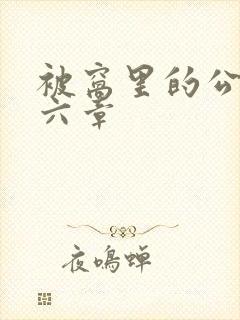 被窝里的公
六章
夜鸣蝉